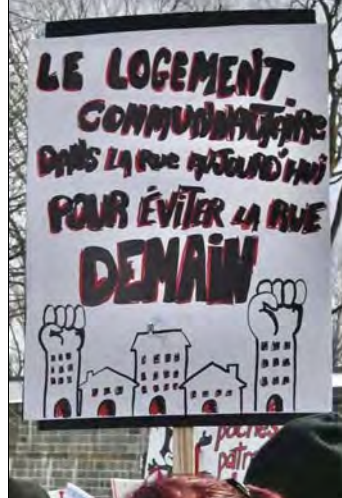 LE LOGEMENT
COMMUNAUTAIRE
DANS LA RUE AUJOURD'HUI
POUR ÉVITER LA RUE
DEMAIN
poches
patr